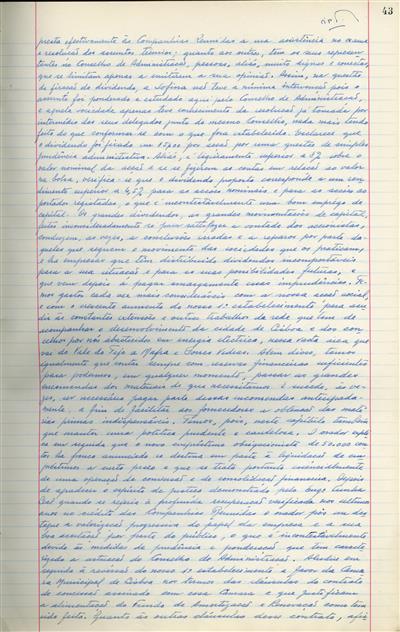 43
presta efectivamente às Companhias Reunidas a sua assistência no exame
e resolução dos assuntos técnicos; quanto aos outros, tem os seus represen-
tantes no Conselho de Administração, pessoas, aliás, muito dignas e correctas,
que se limitam apenas a emitirem a sua opinião. Assim, na questão
da fixação do dividendo, a Sofina não teve a mínima intervenção pois o
assunto foi ponderado e estudado aqui pelo Conselho de Administração,
e aquela sociedade apenas teve conhecimento da resolução já tomada por
intermédio dos seus delegados junto do mesmo Conselho, nada mais tendo
feito do que conformar-se com o que fora estabelecido. Esclarece que
o dividendo foi fixado em por acção por uma questão de simples
prudência administrativa. Aliás, é ligeiramente superior a 9% sobre o
valor nominal da acção e se se fizerem as contas em relação ao valor
na bolsa, verifica-se que o dividendo proposto corresponde a um ren-
dimento superior a 4,5% para as acções nominais e para as acções ao
portador registadas, o que é incontestavelmente um bom emprego de
capital. Os grandes dividendos, as grandes remunerações de capital,
feitos inconsideradamente só para satisfazer a vontade dos accionistas,
conduzem, às vezes, a conclusões erradas e a reparos por parte da
queles que seguem o movimento das sociedades que os praticam
e há empresas que têm distribuído dividendos incomportáveis
para a sua situação e para as suas possibilidades futuras, e
que vem depois a pagar amargamente essas imprudências. Te-
mos gastos cada vez mais consideráveis com a nossa acção social,
e com o crescente aumento do nosso 1º estabelecimento para aco-
dir às constantes extensões e outros trabalhos da rede que tem de
acompanhar o desenvolvimento da cidade de Lisboa e dos con-
celhos por nós abastecidos em energia eléctrica, nessa vasta área que
vai do Vale do Tejo a Mafra e Torres Vedras. Além disso, temos
igualmente que contar sempre com reservas financeiras suficientes
para podermos, em qualquer momento, passar as grandes
encomendas dos materiais de que necessitamos. E sucede, às ve-
zes, ser necessário pagar parte dessas encomendas antecipada-
mente, a fim de facilitar aos fornecedores a obtenção das maté-
rias primas indispensáveis. Temos, pois, neste capítulo também
que manter uma política prudente e cautelosa. O orador expli-
ca em seguida que o novo empréstimo obrigacionista de 50.000 con-
tos há pouco anunciado se destina em parte à liquidação de em-
préstimos a curto prazo e que se trata portanto essencialmente
de uma operação de conversão e de consolidação financeira. Depois
de agradecer o espírito de justiça demonstrado pelo Eng.º Cunha
Leal quando se referiu à profunda recuperação verificada nos últimos
anos no crédito das Companhias Reunidas o orador pôs em des-
taque a valorização progressiva do papel da empresa e a sua
boa aceitação por parte do público, o que é incontestavelmente
devido às medidas de prudência e ponderação que tem caracte-
rizado a actuação do Conselho de Administração. Aludiu em
seguida à reversão do nosso 1º estabelecimento a favor da Câma-
ra Municipal de Lisboa nos termos das cláusulas do contrato
de concessão assinado com essa Câmara e que justificam
a alimentação do Fundo de Amortização e Renovação como tem
sido feita. Quanto às outras cláusulas desse contrato, afir